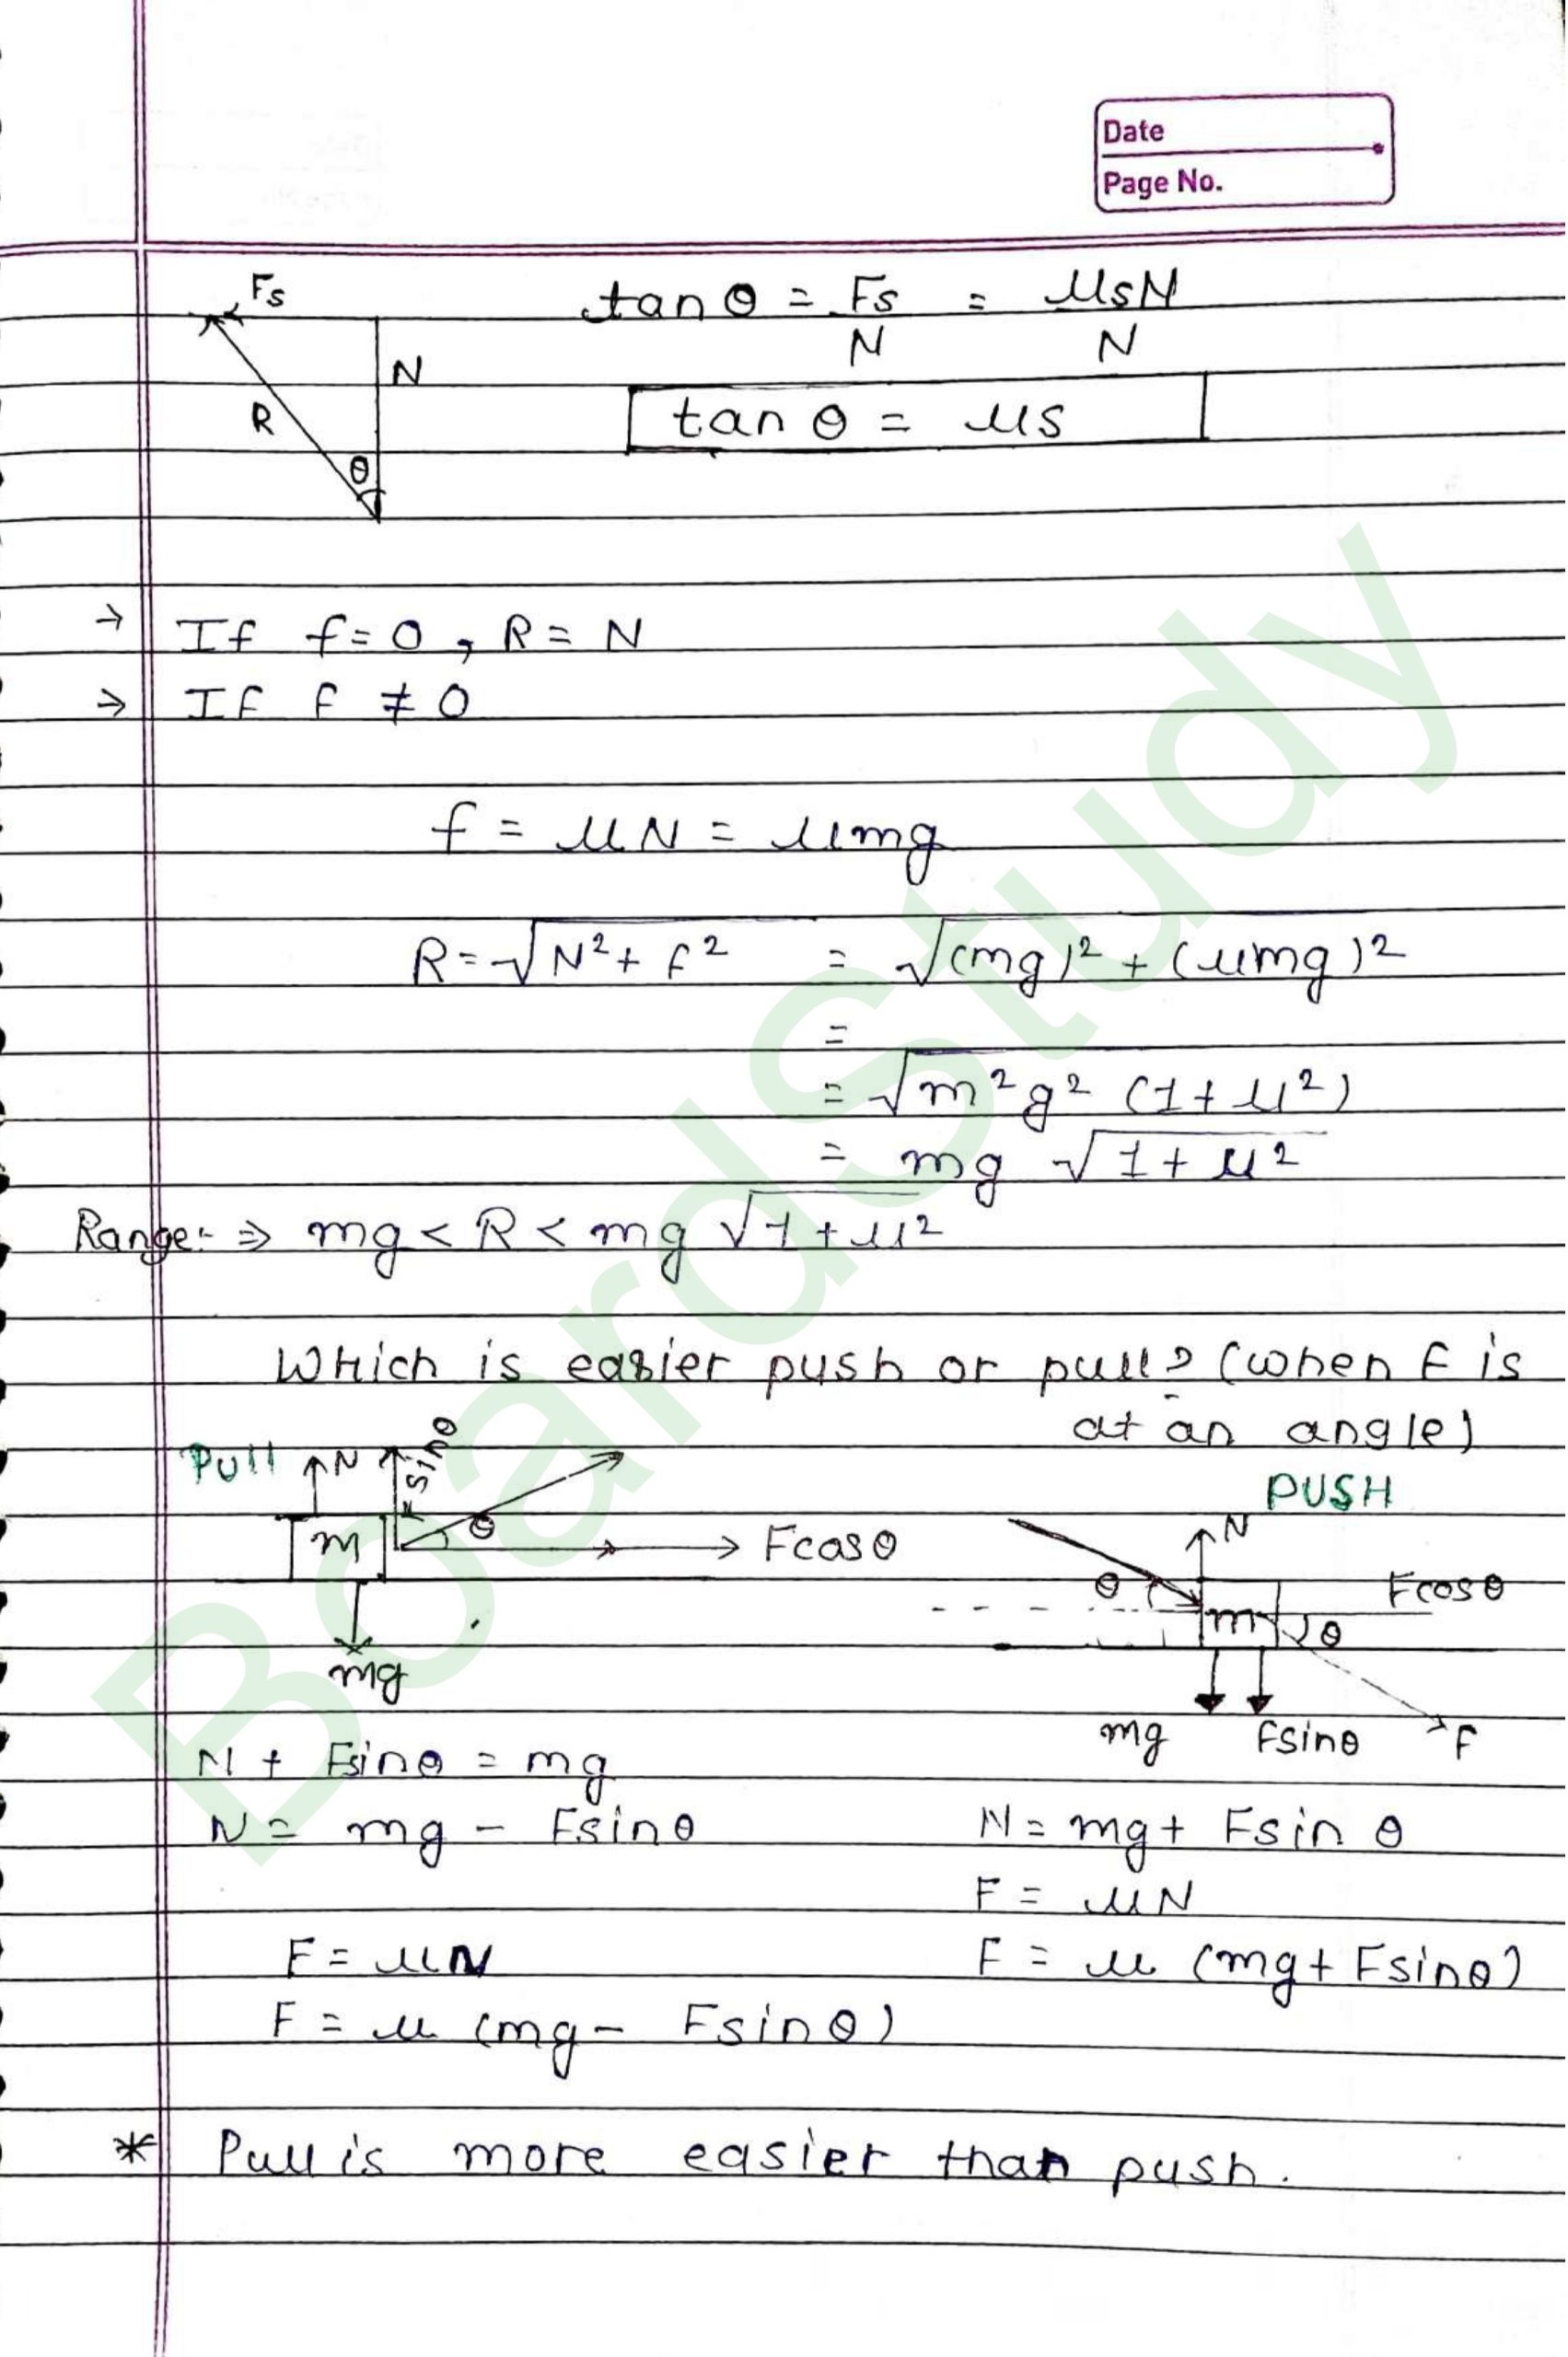 Date
Page No.
Fs
tan θ = Fs/N = μsN/N
N
R
tan θ = μs
θ
→ If f = 0, R = N
→ If f ≠ 0
f = μN = μmg
R = √N² + f² = √(mg)² + (μmg)²
=
= √m²g² (1 + μ²)
= mg √1 + μ²
Range:- ⇒ mg < R < mg √1 + μ²
Which is easier push or pull? (when F is
at an angle)
Pull
N
Fsinθ
PUSH
m
θ
Fcosθ
N
θ
Fcosθ
m
θ
mg
mg
Fsinθ
F
N + Fsinθ = mg
N = mg - Fsinθ
N = mg + Fsin θ
F = μN
F = μN
F = μ (mg + Fsinθ)
F = μ (mg - Fsinθ)
* Pull is more easier than push.
BoardStudy